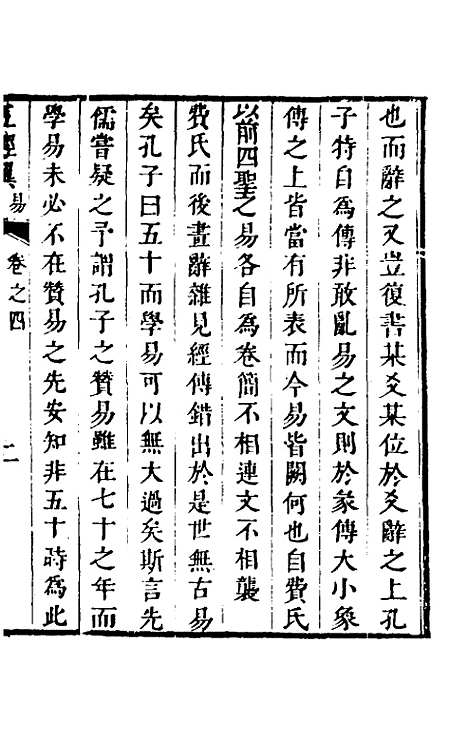 也而辭之又豈復書某爻某位於爻辭之上孔
子特自為傳非敢亂易之文則於彖傳大小象
傳之上皆當有所表而今易皆闕何也自費氏
以前四聖之易各自為卷簡不相連文不相襲
費氏而後畫辭雜見經傳錯出於是世無古易
矣孔子曰五十而學易可以無大過矣斯言先
儒嘗疑之予謂孔子之贊易雖在七十之年而
學易未必不在贊易之先安知非五十時為此
五經異 易 卷之四